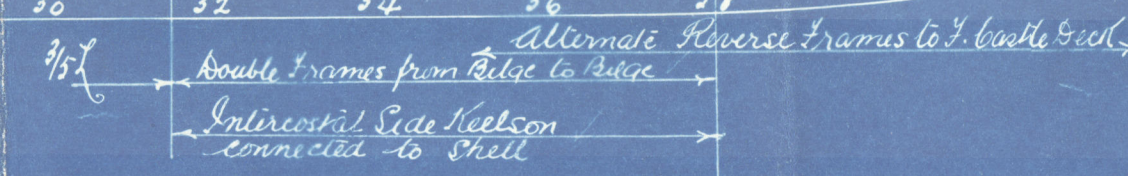 30 32 34 36 38
Alternate Reverse Frames to F. Castle Deck
3/5 L
Double Frames from Bilge to Bilge
Intercostal Side Keelson
connected to Shell